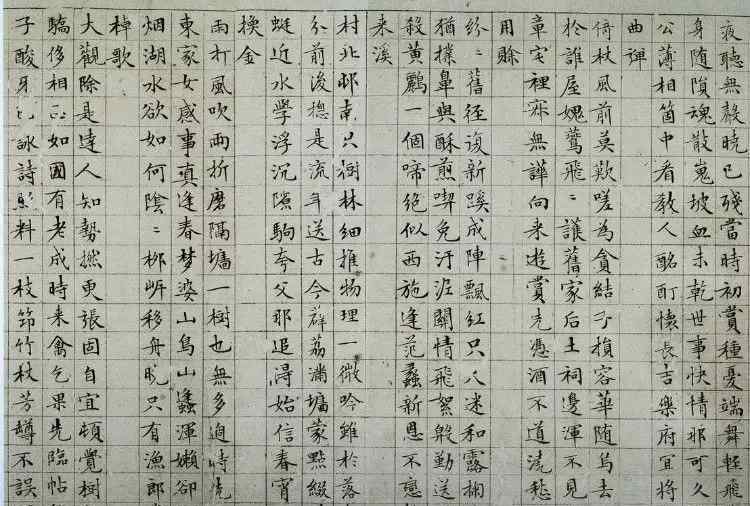 夜聽無聲曉已殘當時初賞種憂端舞輕飛
身随隕魂散嵬坡血未乾世事快情那可久
公薄相箇中看教人酩酊懷長吉樂府宜将
曲彈
倚杖風前莫歎嗟為貪結子損容華随烏去
於誰屋媿鶯飛〻護舊家后土祠邊渾不見
章宅裡寂無譁向来遊賞先憑酒不道澆愁
用賒
紛〻舊径復新蹊成陣飄紅只八迷和露掬
猶搽鼻與酥煎喫免汙泥關情飛絮殷勤送
殺黄鸝一個啼絶似西施逢范蠡新恩不戀
来溪
村北邨南只樹林細推物理一微吟雖於落
分前後揔是流年送古今群荔滿墉蒙㸃綴
蜓近水學浮沉隙駒夸父那追淂始信春宵
換金
雨打風吹兩折磨隔墉一樹也無多過時光
東家女感事真逢春梦婆山鳥山蠭渾嬾卻
烟湖水欲如何陰〻柳㟁移舟晚只有漁郎
棹歌
大觀除是達人知勢撚更張固自宜頓覺樹
驕侈相如國有老成時来禽乞果先臨帖
子酸牙詠詩料一枝笻竹杖芳罇不誤